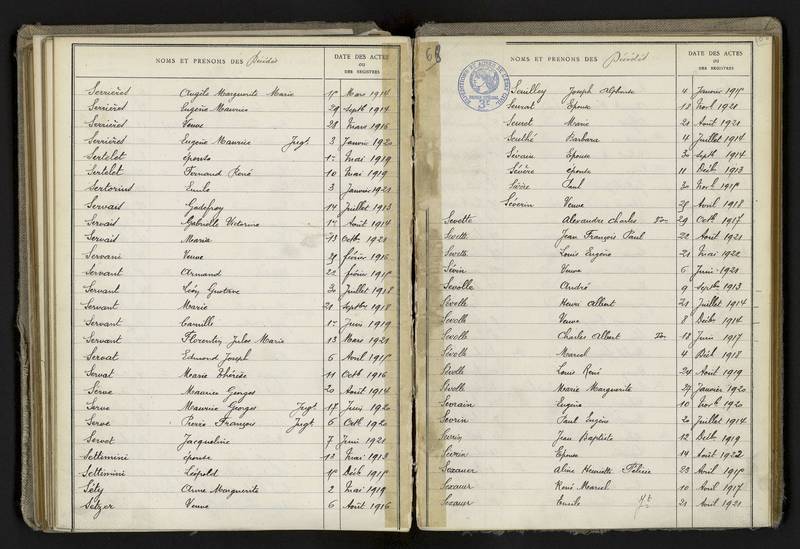 NOMS ET PRÉNOMS DES Décédés DATE DES ACTES
OU
DES REGISTRES
Serrières Angèle Marguerite Marie 15 Mars 1914
Serrières Eugène Maurice 29 Septb 1914
Serrières Veuve 28 Mars 1916
Serrières Eugène Maurice Jugt 3 Janvier 1920
Sertelet épouse 1er Mai 1919
Sertelet Fernand René 10 Mai 1919
Sertorius Emile 3 Janvier 1921
Servais Godefroy 14 Juillet 1913
Servais Gabrielle Victorine 1er Août 1914
Servais Maria 13 Octb 1921
Servani Veuve 29 février 1916
Servant Armand 22 février 1915
Servant Léon Gustave 30 Juillet 1918
Servant Marie 21 Septbre 1918
Servant Camille 1er Juin 1919
Servant Florentin Jules Marie 13 Mars 1921
Servat Edmond Joseph 6 Avril 1915
Servat Marie Thérèse 11 Octb 1916
Serve Maurice Georges 20 Août 1914
Serve Maurice Georges Jugt 17 Juin 1920
Serve Pierre François Jugt 6 Octb 1920
Servot Jacqueline 7 Juin 1921
Settimini épouse 13 Mai 1913
Settimini Léopold 15 Décb 1915
Séty Anne Marguerite 2 Mai 1919
Setzer Veuve 6 Août 1916
68
NOMS ET PRÉNOMS DES Décédés DATE DES ACTES
OU
DES REGISTRES
3e
Joseph Alphonse 4 Janvier 1915
Seurat Epouse 13 Novb 1921
Seuret Marie 21 Août 1921
Barbara 4 Juillet 1914
Sévain Epouse 30 Septb 1914
Sévère épouse 11 Décb 1913
Paul 30 Novb 1915
Séverin Veuve 25 Avril 1918
Sevette Alexandre Charles 29 Octb 1917
Sevette Jean François Paul 22 Août 1921
Sevette Louis Eugène 21 Mai 1922
Sévin Veuve 6 Juin 1921
Sevolle André 9 Septb 1913
Sévolle Henri Albert 21 Juillet 1914
Sevolle Veuve 8 Décb 1914
Sevolle Charles Albert 18 Juin 1917
Sévolle Marcel 4 Décb 1918
Sévolle Louis René 24 Août 1919
Sévolle Marie Marguerite 27 Janvier 1920
Sevrain Eugène 10 Novb 1920
Sevrin Paul Eugène 20 Juillet 1914
Sevrin Jean Baptiste 12 Décb 1919
Sevrin Epouse 14 Août 1922
Sexauer Aline Henriette Félicie 23 Avril 1915
Sexauer René Marcel 10 Avril 1917
Sexauer Emile Jt 21 Avril 1921